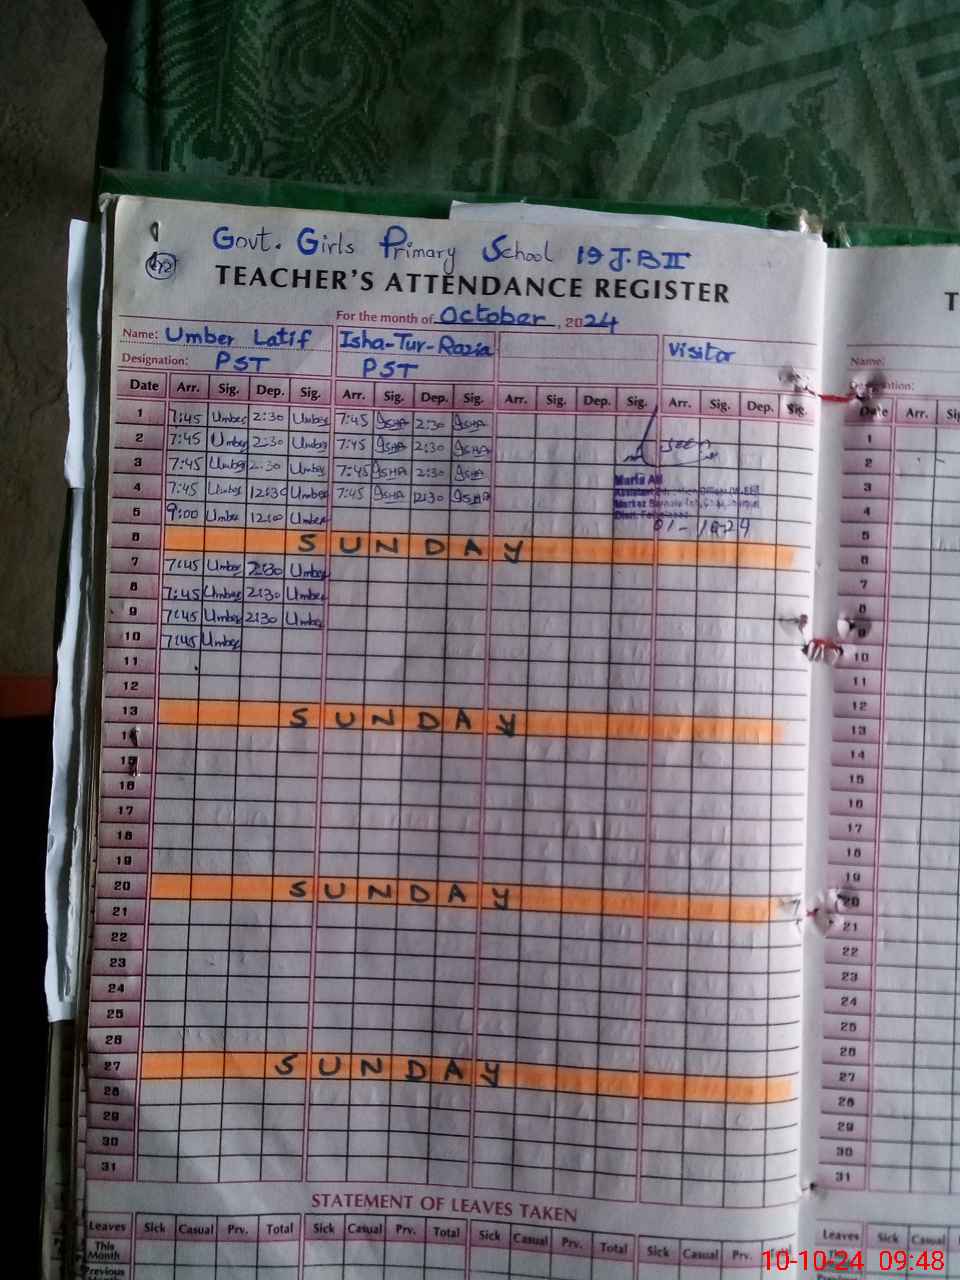 Govt. Girls Primary School 19 J.B II
TEACHER'S ATTENDANCE REGISTER
For the month of October, 2024
Name: Umber Latif Isha-Tur-Razia Visitor
Designation: PST PST
Date Arr. Sig. Dep. Sig. Arr. Sig. Dep. Sig. Arr. Sig. Dep. Sig. Arr. Sig. Dep. Sig.
1 7:45 Umber 2:30 Umber 7:45 ISHA 2:30 ISHA
2 7:45 Umber 2:30 Umber 7:45 ISHA 2:30 ISHA
Seen
3 7:45 Umber 2:30 Umber 7:45 ISHA 2:30 ISHA
4 7:45 Umber 12:30 Umber 7:45 ISHA 12:30 ISHA
Maria
5 9:00 Umber 12:00 Umber
01-10-24
6 SUNDAY
7 7:45 Umber 2:30 Umber
8 7:45 Umber 2:30 Umber
9 7:45 Umber 2:30 Umber
10 7:45 Umber
11
12
13 SUNDAY
14
15
16
17
18
19
20 SUNDAY
21
22
23
24
25
26
27 SUNDAY
28
29
30
31
STATEMENT OF LEAVES TAKEN
Leaves Sick Casual Prv. Total Sick Casual Prv. Total Sick Casual Prv. Total Sick Casual Prv.
This Month
Previous
T
Name:
Date Arr.
1
2
3
4
5
6
7
8
9
10
11
12
13
14
15
16
17
18
19
20
21
22
23
24
25
26
27
28
29
30
31
Leaves Sick Casual
10-10-24 09:48